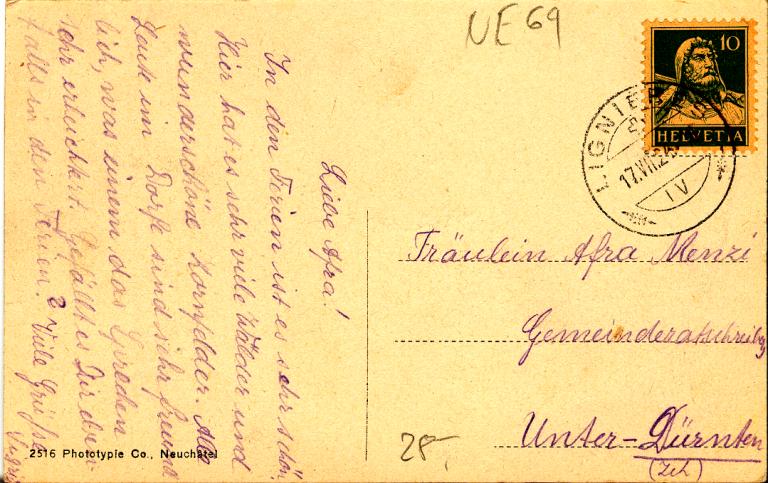 NE 69
10
HELVETIA
LIGNIÈRES
17.VII.2
IV
Liebe Afra!
In den Ferien ist es sehr schön.
Hier hat es sehr viele Wälder und
wunderschöne Kornfelder. Alle
Leute im Dorfe sind sehr freund
lich, was einem das Gereden
sehr erleichtert. Gefällt es Dir eben
falls in den Ferien? Viele Grüsse
Fräulein Afra Menzi
Gemeinderatschreiberg
Unter-Dürnten
(Zch)
28.-
2516 Phototypie Co., Neuchâtel